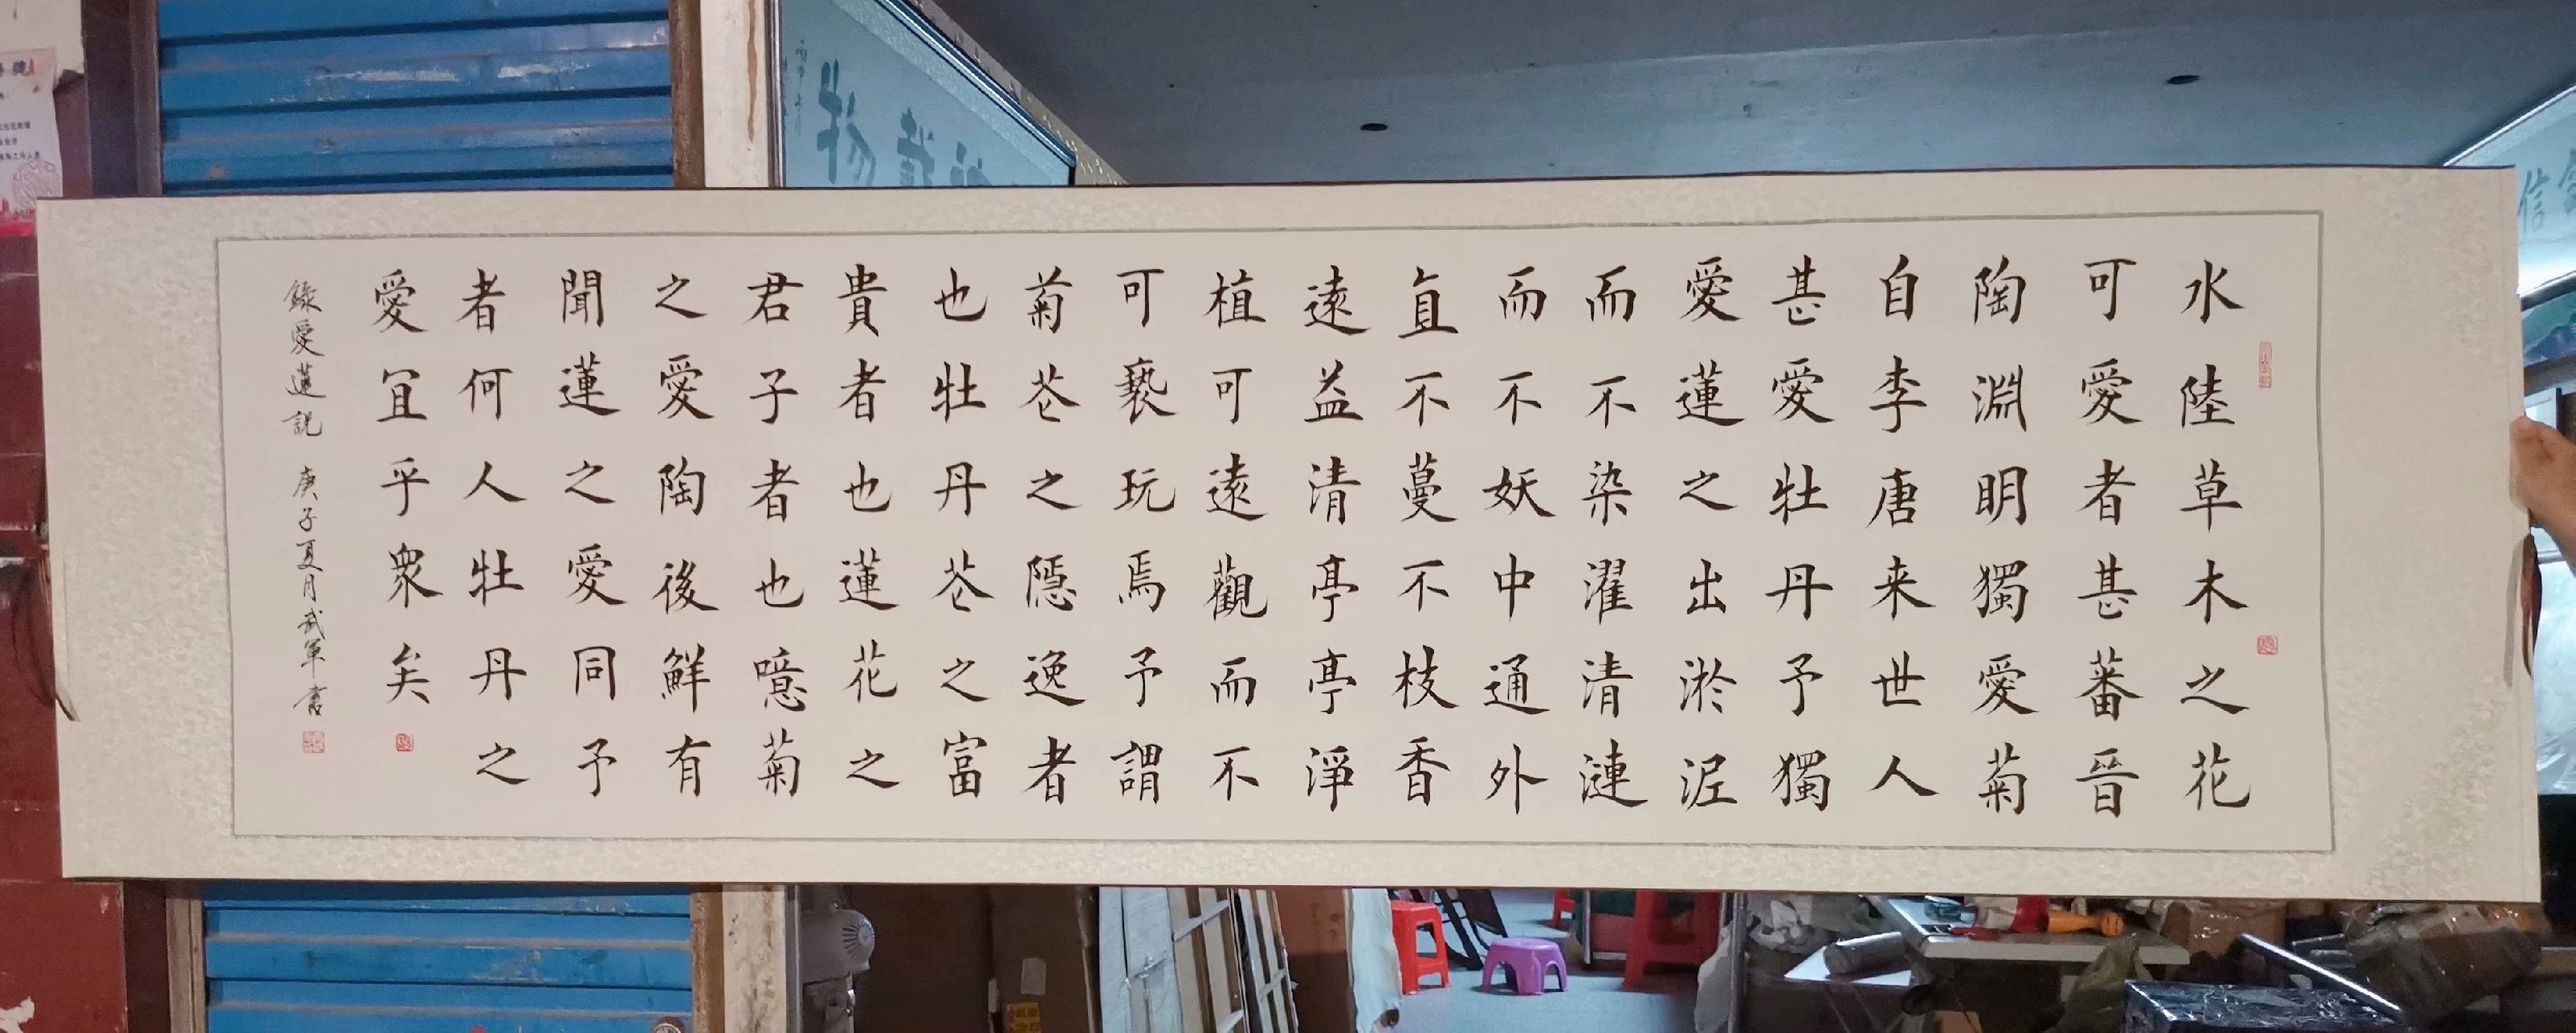 水陸草木之花
可愛者甚蕃晉
陶淵明獨愛菊
自李唐来世人
甚愛牡丹予獨
愛蓮之出淤泥
而不染濯清漣
而不妖中通外
直不蔓不枝香
遠益清亭亭淨
植可遠觀而不
可褻玩焉予謂
菊芲之隱逸者
也牡丹芲之富
貴者也蓮花之
君子者也噫菊
之愛陶後鮮有
聞蓮之愛同予
者何人牡丹之
愛宜乎衆矣
錄愛蓮説 庚子夏月武軍書
載物
信